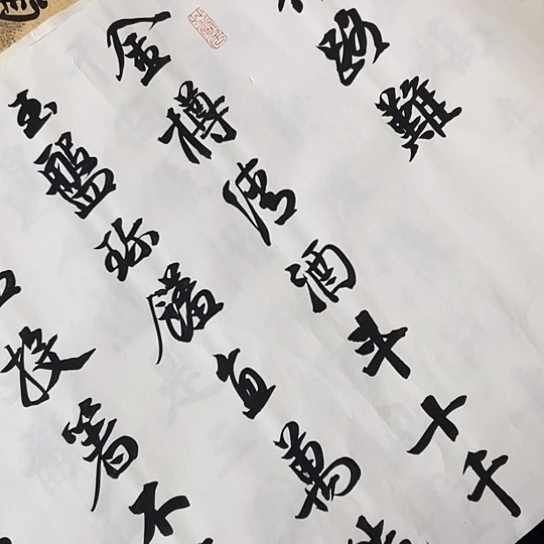 路難
金樽清酒斗十千
玉盤珍饈直萬
投箸不